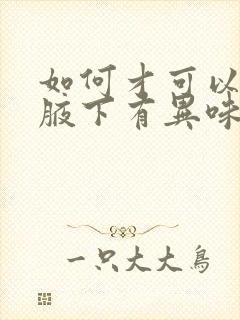 如何才可以
腋下有異味
一只大大鳥